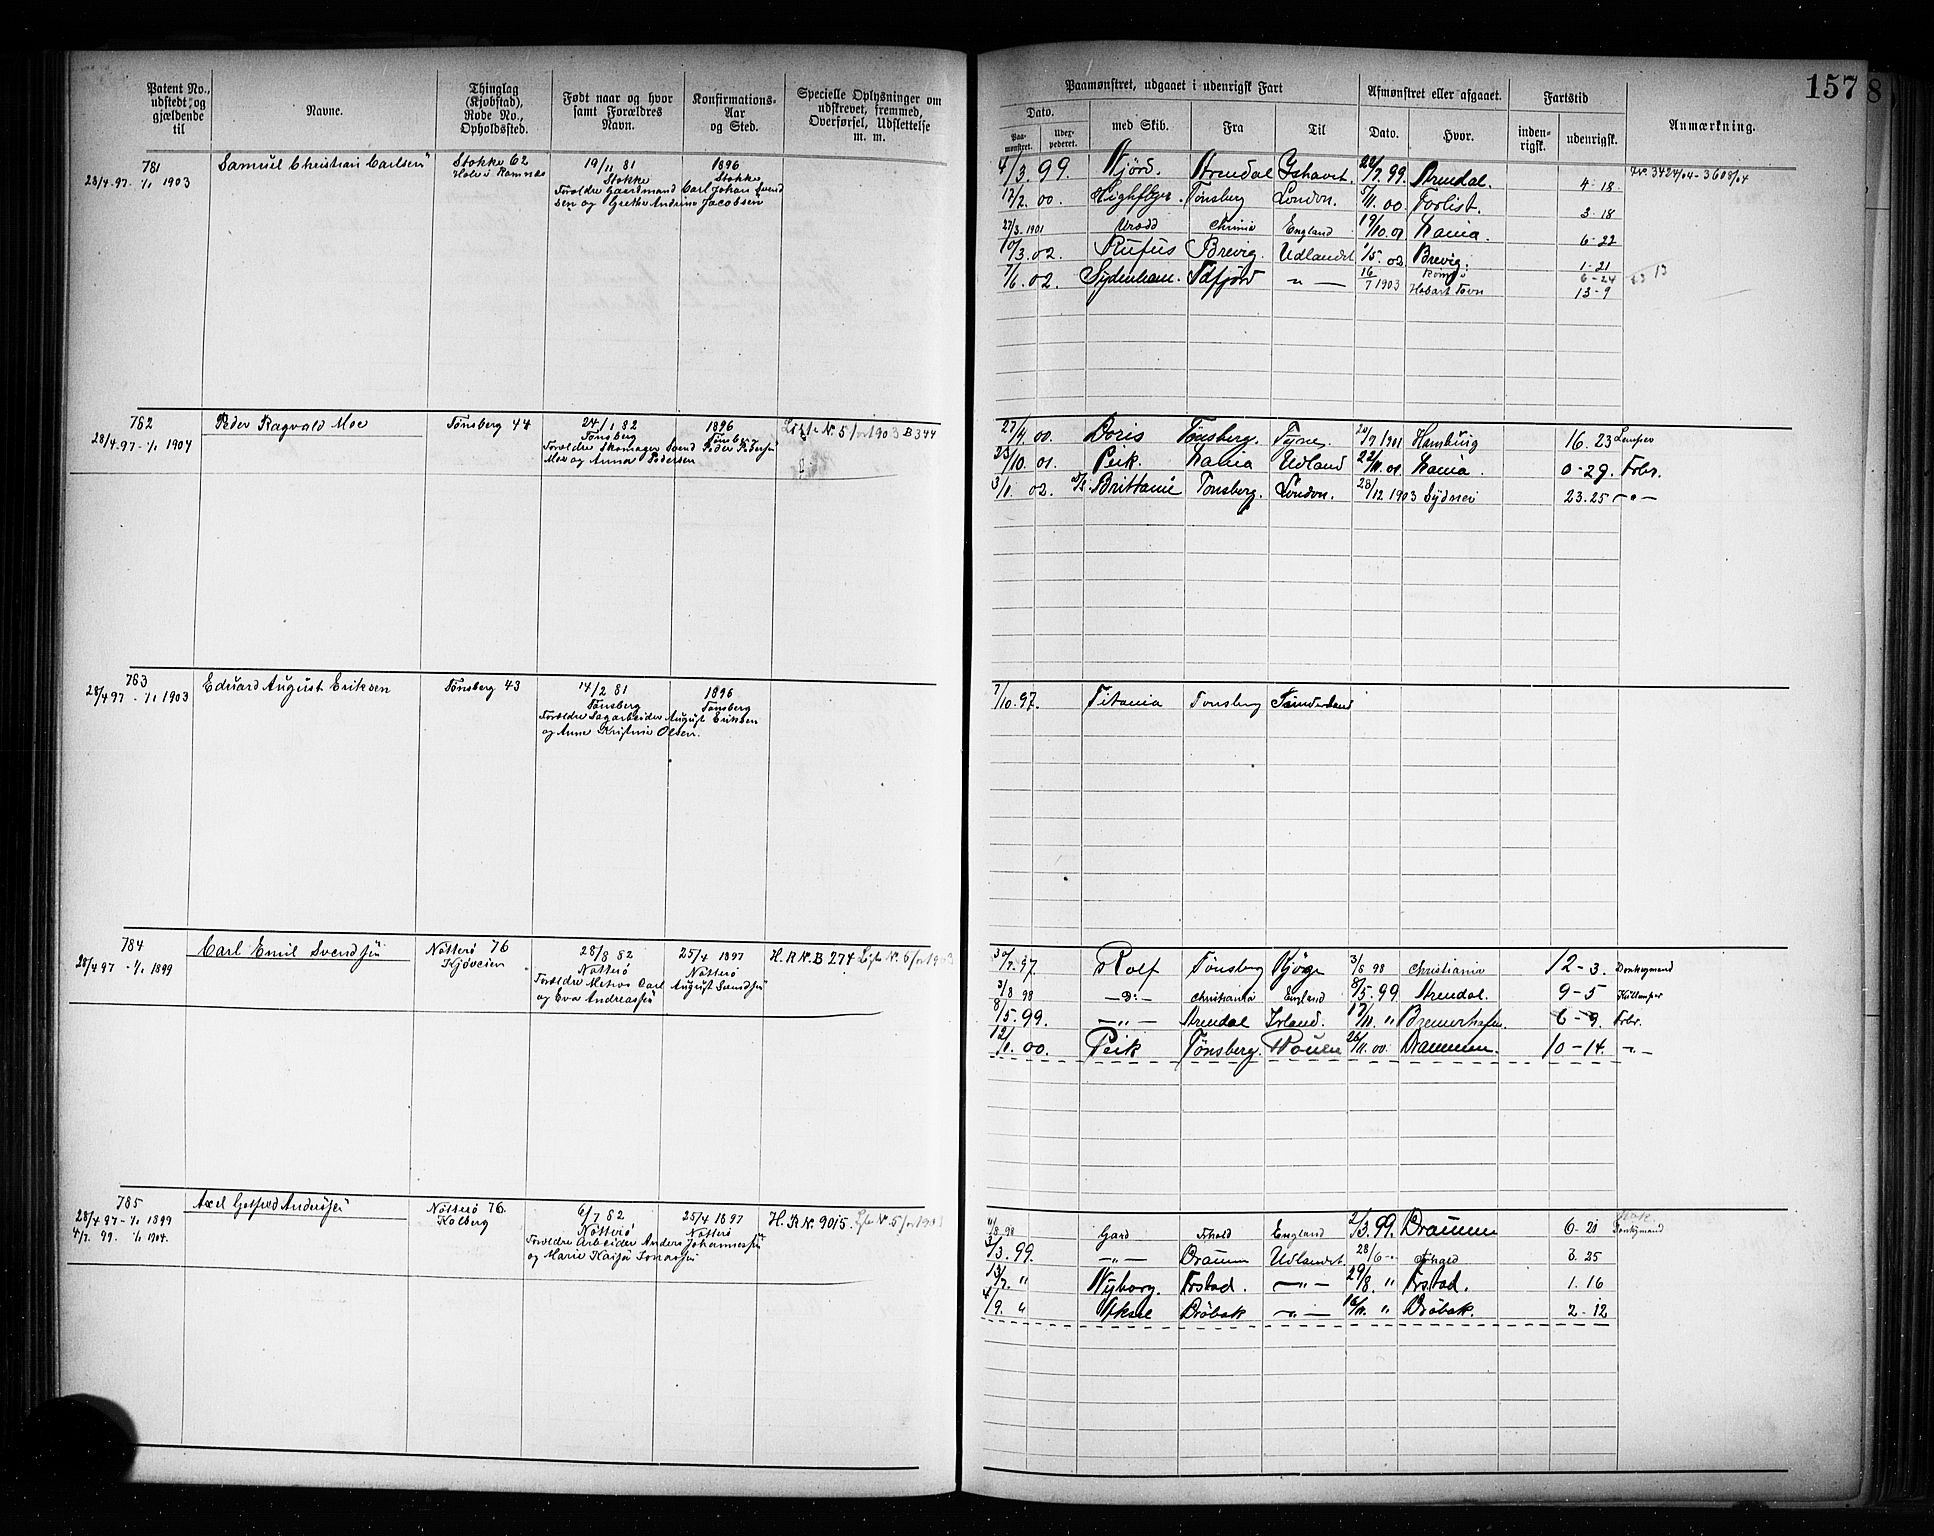 157
8
Patent No., udstedt, og gjældende til
Navne.
Thinglag (Kjøbstad), Rode No., Opholdssted.
Født naar og hvor samt Forældres Navn.
Konfirmations-Aar og Sted.
Specielle Oplysninger om udskrevet, fremmed, Overførsel, Udslettelse m. m.
Paamønstret, udgaaet i udenrigsk Fart
Dato.
Paa-mønstret.
med Skib.
Fra
Til
Afmønstret eller afgaaet.
Dato.
Hvor.
Fartstid
inden-rigsk.
udenrigsk.
Anmærkning.
781
28/4 97 - 1/1 1903
Samuel Christian Carlsen
Stokke 62
19/11 81
Stokke
1896
Stokke
Forældre Gaardmand Carl Johan Svend
sen og Grethe Andrine Jacobsen
4/3 99. Fjord. Arendal Ishavet. 22/7 99. Arendal. 4-18
17/2 00. Highflyer. Tønsberg London. 5/11 00 Forlist. 3-18
27/3 1901 England 19/10 01 Lania. 6-22
10/3 02. Rufus Brevig. Udlandet 1/5 02 Brevig. 1-21
7/6 02. Sydenham. 16/7 1903 Hobart Town 6-24
13-9
782
28/4 97 - 1/1 1904
Peder Ragvald Moe
Tønsberg 44
24/1 82
Tønsberg
1896
Tønsberg
Forældre Skomager Svend Peder Pedersen
Moe og Anna Pedersen
Liste N. 5/1903 B 344
27/9 00. Doris Tønsberg. Tyne. 20/9 1901 Hamburg 16. 23 Lemper
23/10 01. Peik. Lania Udland 22/11 01 Lania. 0-29. Frbr.
3/1 02. Brittania Tønsberg. London. 28/12 1903 Sydnei 23. 25 -"-
783
28/4 97 - 1/1 1903
Eduard August Eriksen
Tønsberg 43
14/2 81
Tønsberg
1896
Tønsberg
Forældre Sagarbeider August Eriksen
og Anne Kristine Olsen.
7/10 97. Titania Tønsberg Sunderland
784
28/4 97 - 1/1 1899
Carl Emil Svendsen
Nøtterø 76
28/8 82
Nøtterø
25/4 1897
Nøtterø
Forældre Matros Carl August Svendsen
og Eva Andreassen
H. R N. B 274 Liste N. 5/1903
30/7 97 Rolf Tønsberg Kjøge 3/8 98 Christiania 12-3. Donkeymand
3/8 98 -D:- Christiania England 8/5 99 Arendal. 9-5
8/5 99. -"- Arendal Irland. 17/11 " Bremerhafen. 6-9. Frbr.
12/1 00. Peik Tønsberg. Rouen 26/11 00. Drammen. 10-14. -"-
785
28/4 97 - 1/1 1899
4/7 99. 1/1 1904.
Axel Gotfred Anderssen
Nøtterø 76.
Kolberg
6/7 82
Nøtterø
25/4 1897
Nøtterø
Forældre Arbeider Anders Johannessen
og Marie Kaisa Jonassen
H. R N. 9015. Liste N. 5/1903
11/8 98 Gard England 2/3 99. Drammen 6-21 Donkeymand
3/3 99. -"- Drammen Udlandet 28/6 -"- 3. 25
13/7 " Nyborg. Frstad. -"- 29/8 " Frstad. 1. 16
4/9 " Aksel Drøbak -"- 16/11 " Drøbak. 2-12